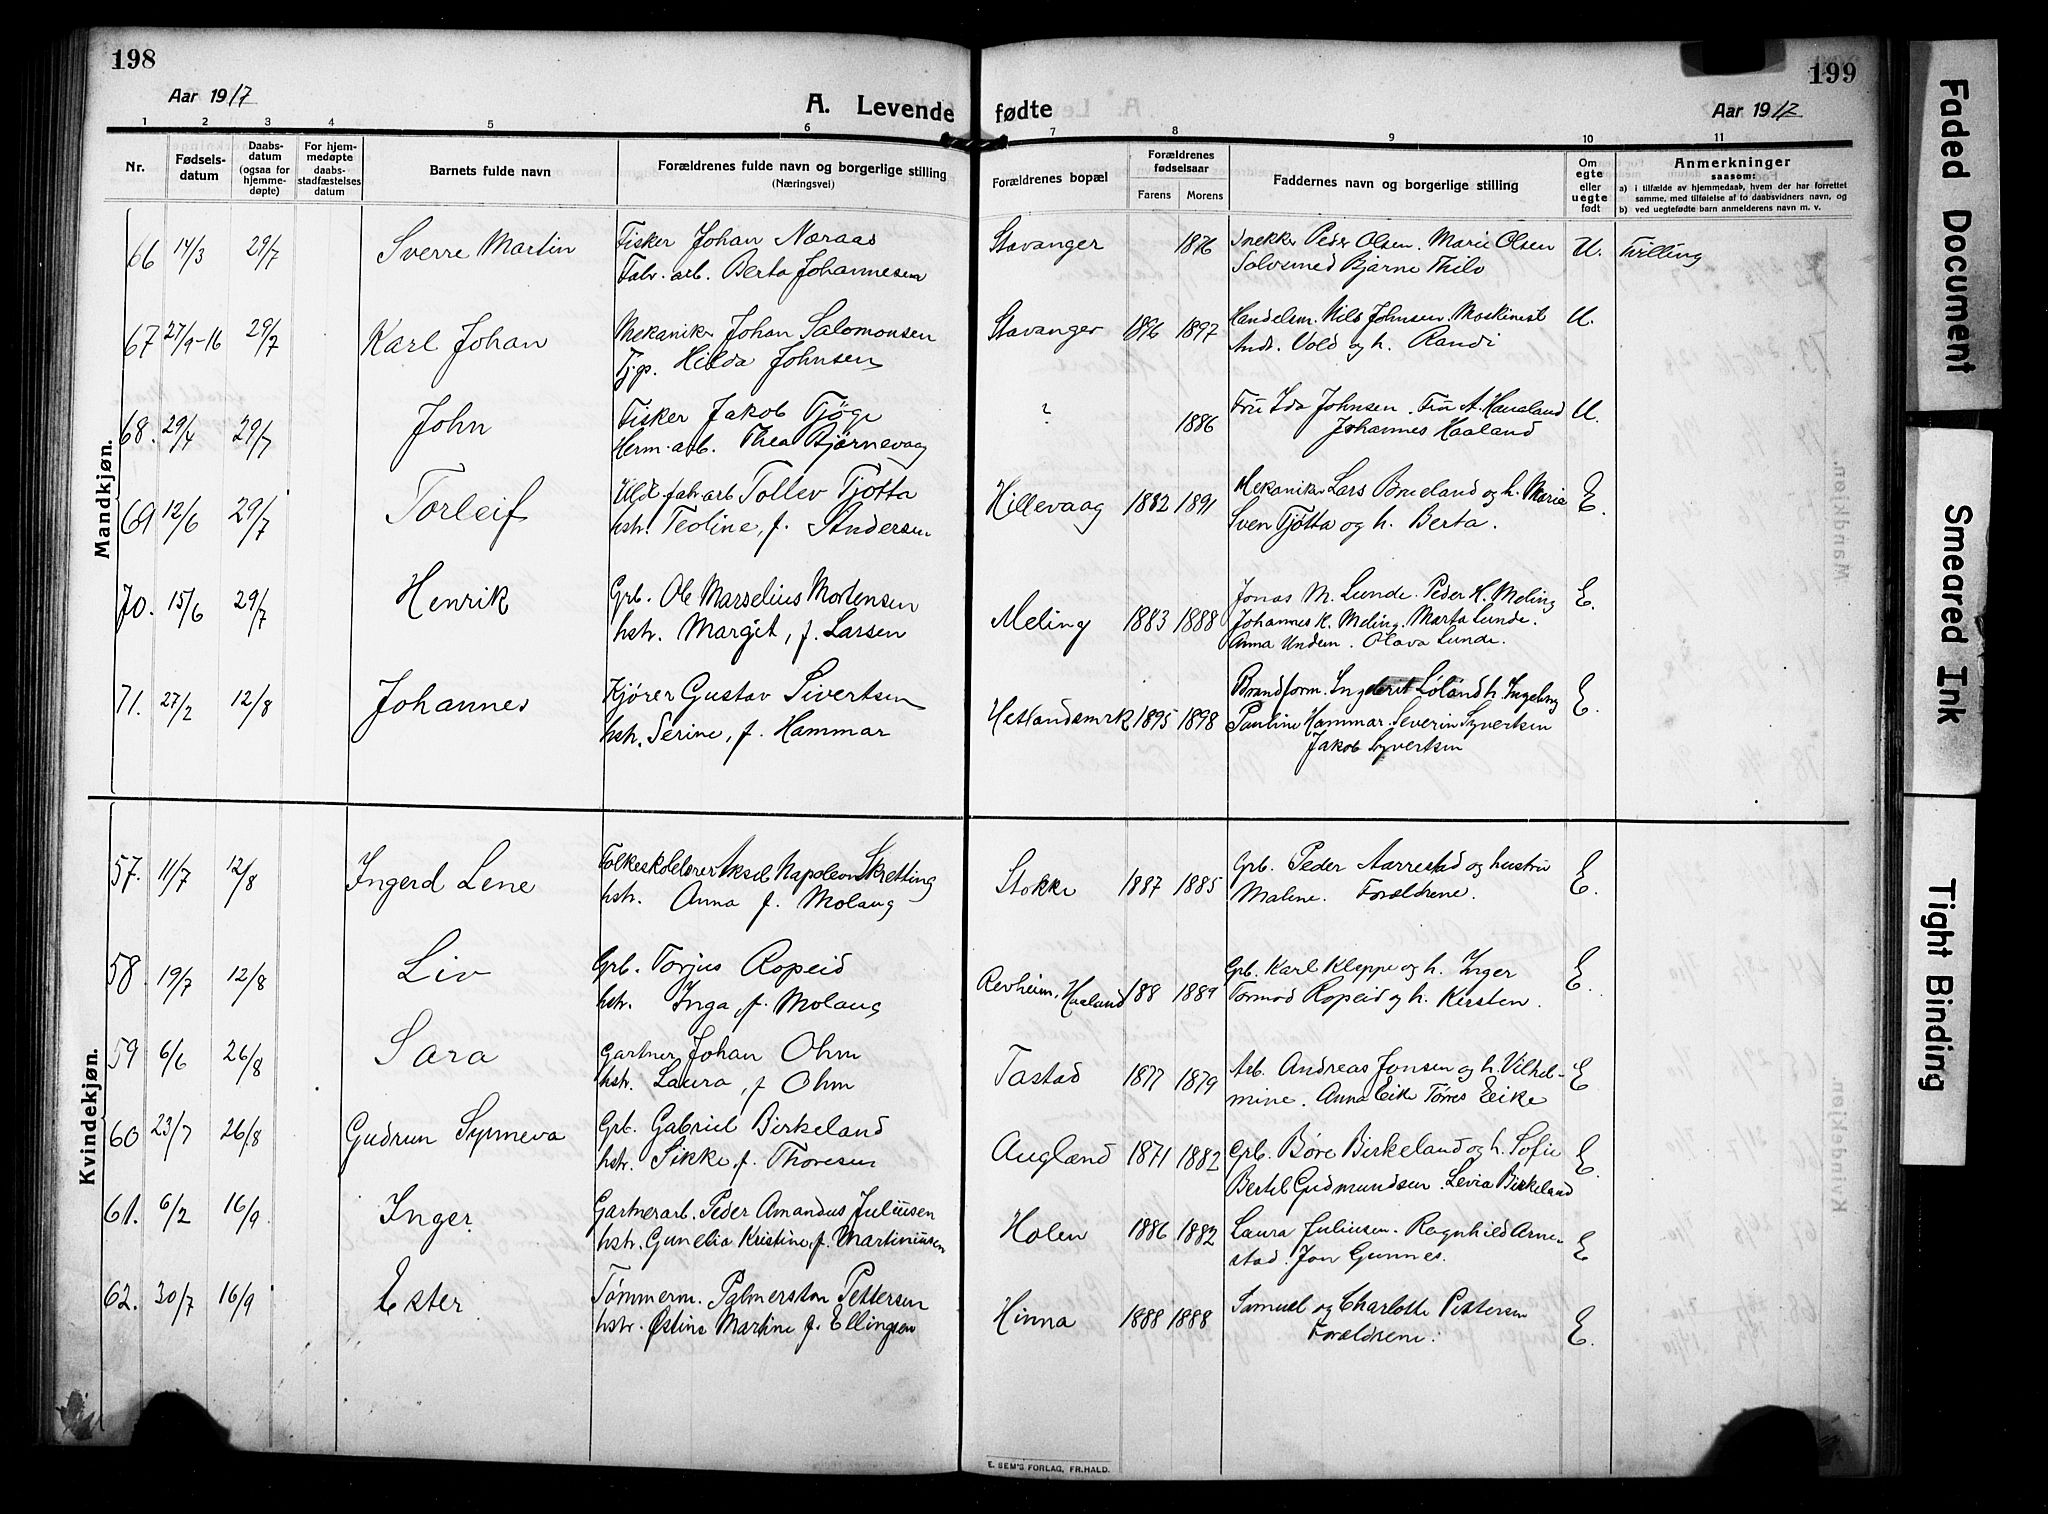 198
Aar 1917
A. Levende
fødte
199
Aar 1917
1 2 3 4 5 6 7 8 9 10 11
Nr.
Fødsels-
datum
Daabs-
datum
(ogsaa for
hjemme-
døpte)
For hjem-
medøpte
daabs-
stadfæstelses
datum
Barnets fulde navn
Forældrenes fulde navn og borgerlige stilling
(Næringsvei)
Forældrenes bopæl
Forældrenes
fødselsaar
Farens Morens
Faddernes navn og borgerlige stilling
Om
egte
eller
uegte
født
Anmerkninger
saasom:
a) i tilfælde av hjemmedaab, hvem der har forrettet
samme, med tilføielse af to daabsvidners navn, og
b) ved uegtefødte barn anmelderens navn m. v.
Mandkjøn.
66 14/3 29/7 Sverre Martin Fisker Johan Næraas Stavanger 1876 Peder Olsen. Marie Olsen U. Tvilling
Fabr. arb. Berta Johannesen Bjarne Thilo
67 27/9-16 29/7 Karl Johan Mekaniker Johan Salomonsen Stavanger 1896 1897 Handelsm. Nils Johnsen. Maskinist U.
Tj.p. Hilda Johnsen Andr. Vold og h. Randi
68. 29/4 29/7 John Fisker Jakob Tjöge ? 1886 Fru Ida Johnsen. Fru A. Haaland U.
Herm. arb. Thea Bjørnevaag Johannes Haaland
69 12/6 29/7 Torleif Uld. fabr arb Tollev Tjøtta Hillevaag 1882 1891 Mekaniker Lars Brueland og h. Maria E.
hstr. Teoline, f. Andersen Sven Tjøtta og h. Berta.
70. 15/6 29/7 Henrik Grb. Ole Marselius Mortensen Meling 1883 1888 Jonas M. Lunde. Peder K. Meling E.
hstr. Margit, f. Larsen Johannes K. Meling. Marta Lunde.
Anna Undem. Olava Lunde.
71. 27/2 12/8 Johannes Kjører Gustav Sivertsen Hetlandsmrk 1895 1898 Brandform. Løland h. Ingeborg E.
hstr. Serine, f. Hammar Pauline Hammar. Severin Syvertsen
Jakob Syvertsen
Kvindekjøn.
57. 11/7 12/8 Ingerd Lene Folkeskolelærer Aksel Napoleon Skretting Stokke 1887 1885 Grb. Peder Aarrestad og hustru E.
hstr. Anna f. Molaug Malene. Forældrene.
58. 19/7 12/8 Liv Grb. Torjus Ropeid Revheim, Haaland 188 1889 Grb. Karl Kleppe og h. Inger E.
hstr. Inga, f. Molaug Tormod Ropeid og h. Kirsten.
59 6/6 26/8 Sara Gartner Johan Ohm Tastad 1877 1879 Arb. Andreas Jonsen og h. Vilhel- E
hstr. Laura, f Ohm mine. Anna Eike Tørres Eike
60 23/7 26/8 Gudrun Synneva Grb. Gabriel Birkeland Augland 1871 1882 Grb. Børe Birkeland og h. Sofie E.
hstr. Sikke, f. Thoresen Bertel Gudmundsen. Levia Birkeland
61. 6/2 16/9 Inger Gartnerarb. Peder Amandus Juliusen Holen 1886 1882 Laura Juliusen. Ragnhild Arne- E
hstr. Gunelia Kristine, f. Martiniusen stad. Jon Gunnes.
62. 30/7 16/9 Ester Tømmerm. Palmerston Pettersen Hinna 1888 1888 Samuel og Charlotte Pettersen E.
hstr. Østine Martine f. Ellingsen Forældrene.
E. SEM'S FORLAG, FR.HALD.
Faded Document
Smeared Ink
Tight Binding